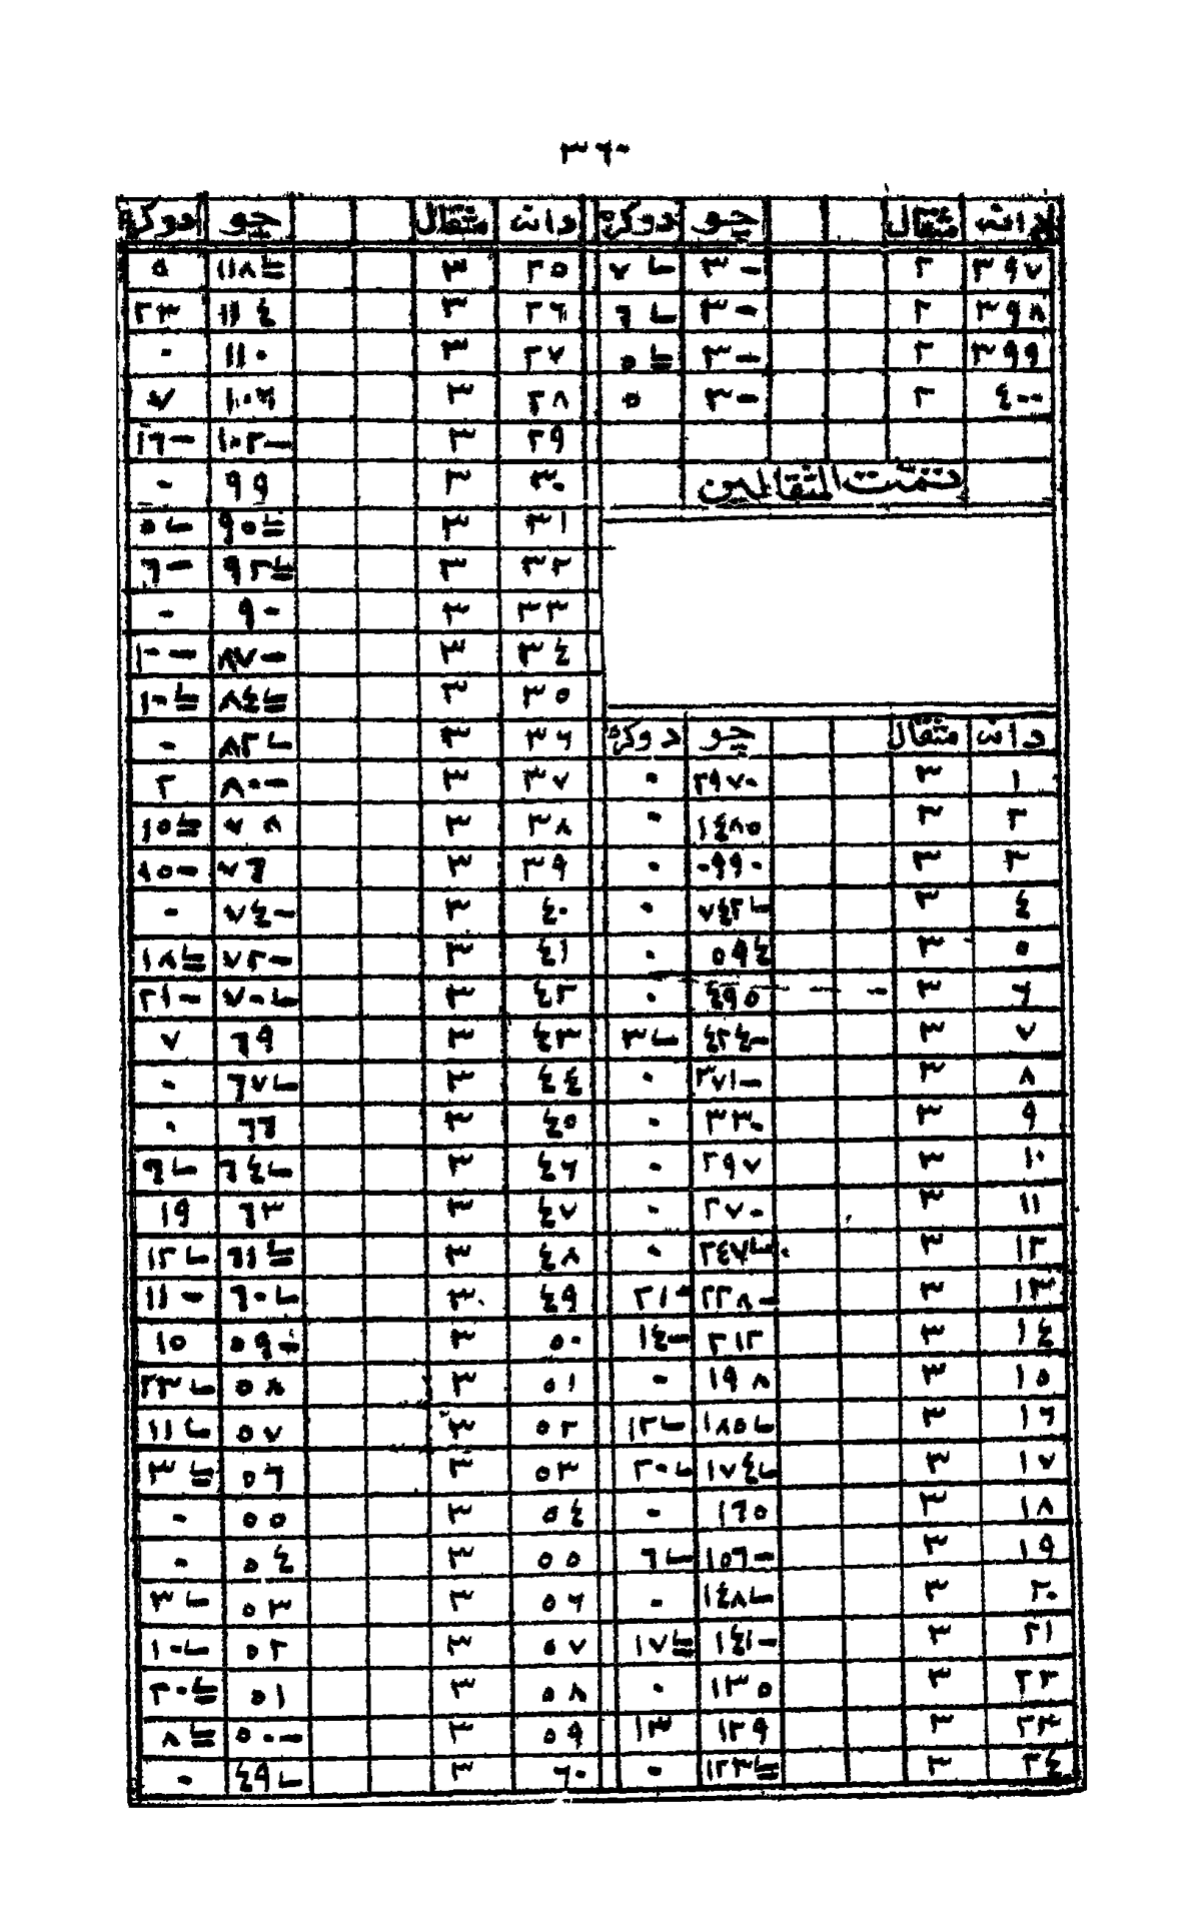 ٣٦٠
دانه مثقال چو دوكره
٣٩٧ ٢ ٣٠ ٧ـا
٣٩٨ ٢ ٣٠ ٦ـا
٣٩٩ ٢ ٣٠ ٥
٤٠٠ ٢ ٣٠ ٥
تمت المثقالين
دانه مثقال چو دوكره
١ ٣ ٢٩٧٠ ٠
٢ ٣ ١٤٨٥ ٠
٣ ٣ ٩٩٠ ٠
٤ ٣ ٧٤٢ـا ٠
٥ ٣ ٥٩٤ ٠
٦ ٣ ٤٩٥ ٠
٧ ٣ ٤٢٤- ٣ـا
٨ ٣ ٣٧١- ٠
٩ ٣ ٣٣٠ ٠
١٠ ٣ ٢٩٧ ٠
١١ ٣ ٢٧٠ ٠
١٢ ٣ ٢٤٧ـا ٠
١٣ ٣ ٢٢٨- ٢١-
١٤ ٣ ٢١٢ ١٤-
١٥ ٣ ١٩٨ ٠
١٦ ٣ ١٨٥ـا ١٢ـا
١٧ ٣ ١٧٤ـا ٢٠ـا
١٨ ٣ ١٦٥ ٠
١٩ ٣ ١٥٦- ٦ـا
٢٠ ٣ ١٤٨ـا ٠
٢١ ٣ ١٤١- ١٧ـا=
٢٢ ٣ ١٣٥ ٠
٢٣ ٣ ١٢٩ ١٣
٢٤ ٣ ١٢٣ـا= ٠
دانه مثقال چو دوكره
٢٥ ٣ ١١٨ـا= ٥
٢٦ ٣ ١١٤ ٢٣
٢٧ ٣ ١١٠ ٠
٢٨ ٣ ١٠٦ ٧
٢٩ ٣ ١٠٢- ١٦-
٣٠ ٣ ٩٩ ٠
٣١ ٣ ٩٥ـا= ٥ـا
٣٢ ٣ ٩٢ـا= ٦-
٣٣ ٣ ٩٠ ٠
٣٤ ٣ ٨٧- ١٠-
٣٥ ٣ ٨٤ـا= ١٠ـا=
٣٦ ٣ ٨٢ـا ٠
٣٧ ٣ ٨٠- ٢
٣٨ ٣ ٧٨ ١٥ـا=
٣٩ ٣ ٧٦ ١٥-
٤٠ ٣ ٧٤- ٠
٤١ ٣ ٧٢- ١٨ـا=
٤٢ ٣ ٧٠ـا ٢١-
٤٣ ٣ ٦٩ ٧
٤٤ ٣ ٦٧ـا ٠
٤٥ ٣ ٦٦ ٠
٤٦ ٣ ٦٤ـا ٩ـا
٤٧ ٣ ٦٣ ١٩
٤٨ ٣ ٦١ـا= ١٢ـا
٤٩ ٣ ٦٠ـا ١١-
٥٠ ٣ ٥٩- ١٥
٥١ ٣ ٥٨ ٢٣ـا
٥٢ ٣ ٥٧ ١١ـا
٥٣ ٣ ٥٦ ٣ـا=
٥٤ ٣ ٥٥ ٠
٥٥ ٣ ٥٤ ٠
٥٦ ٣ ٥٣ ٣ـا
٥٧ ٣ ٥٢ ١٠ـا
٥٨ ٣ ٥١ ٢٠ـا=
٥٩ ٣ ٥٠- ٨ـا=
٦٠ ٣ ٤٩ـا ٠